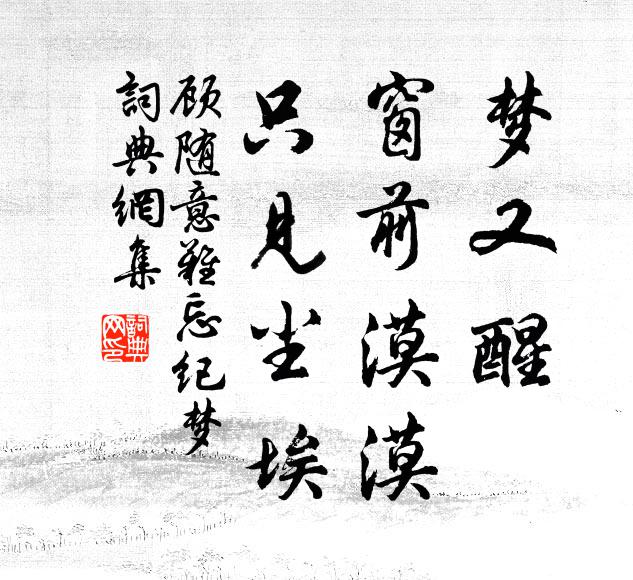 梦又醒
窗前漠漠
只见尘埃
顾随意难忘纪梦
詞典網集
詞典
网印